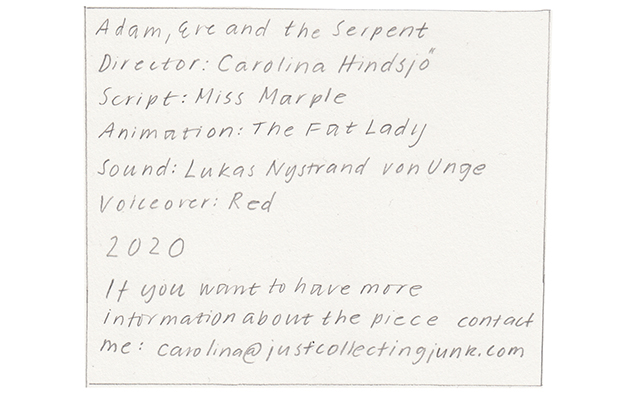 Adam, Eve and the Serpent
Director: Carolina Hindsjö
Script: Miss Marple
Animation: The Fat Lady
Sound: Lukas Nystrand von Unge
Voiceover: Red
2020
If you want to have more
information about the piece contact
me: carolina@justcollectingjunk.com